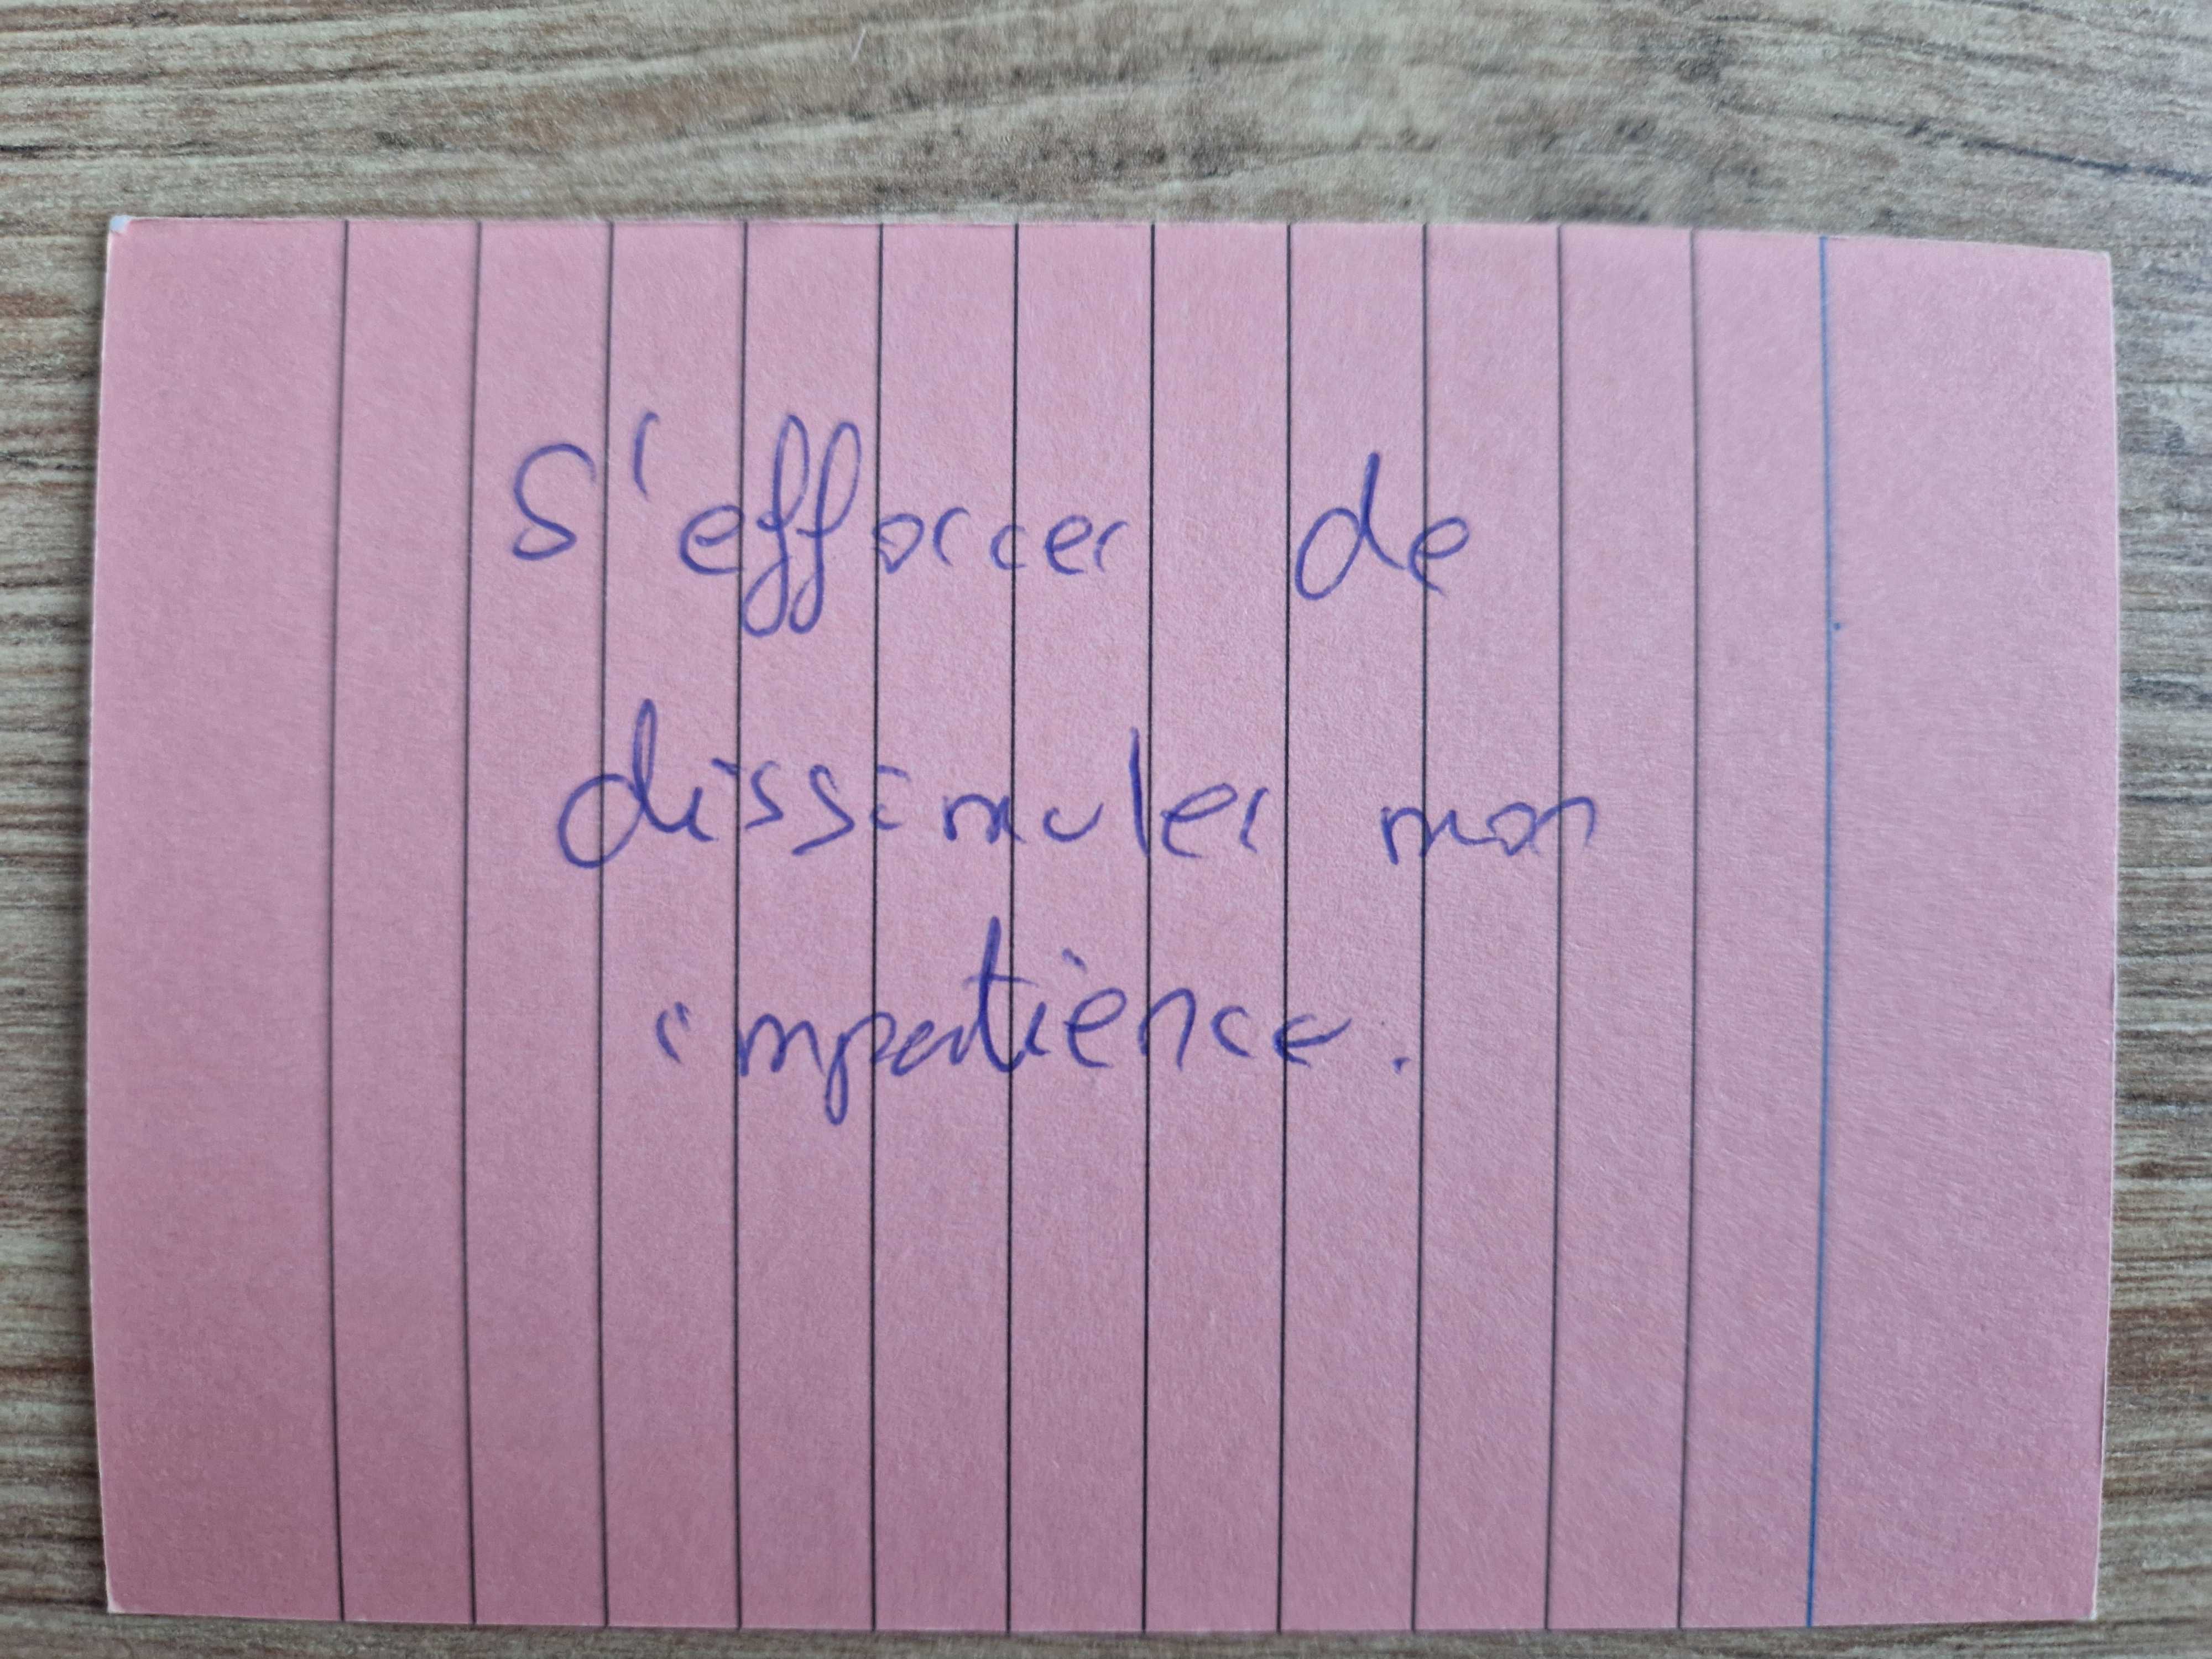 S'efforcer de
dissimuler mon
impatience.